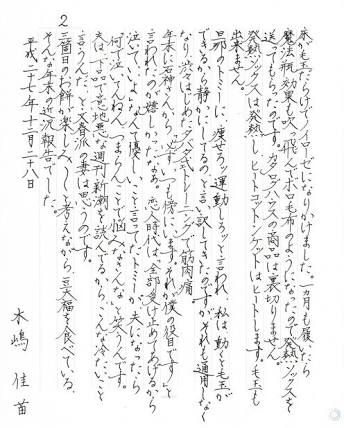 床が毛玉だらけでノイローゼになりかけました。一カ月も履いたら
魔法瓶効果も吹っ飛んでボロ毛布のようになったので発熱ソックスを
送ってもらったのです。カタログハウスの商品は裏切りません。
発熱ソックスは発熱し、ヒートコットンケットはヒートします。毛玉も
出来ません。
旦那のトミーに、痩せろッ運動しろッと言われ、私は動くと毛玉が
できるから静かにしてるのと言い訳してきたのですが、それも通用しなく
なり、渋々はじめたタンメ式トレーニングで筋肉痛。
年末に石神さんから「いつも傍にいます。それが僕の役目です」と
言われたのが嬉しかったなあ。恋人時代は「全部受け止めてあげるから
泣いていいよ」なんて優しいこと言ってたトミーが、夫になったら
「何で泣いてんねん。つまらんことで悩みなさんな」と笑うんです。
夫は「下品で意地悪な週刊新潮も読んでるから、こんな冷たいこと
言うんだ」と文春派の妻は思うのです。
三箇日のお餅が楽しみ〜と考えながら、豆大福を食べている、
そんな年末の近況報告でした。
平成二十七年十二月二十八日
木嶋 佳苗
2